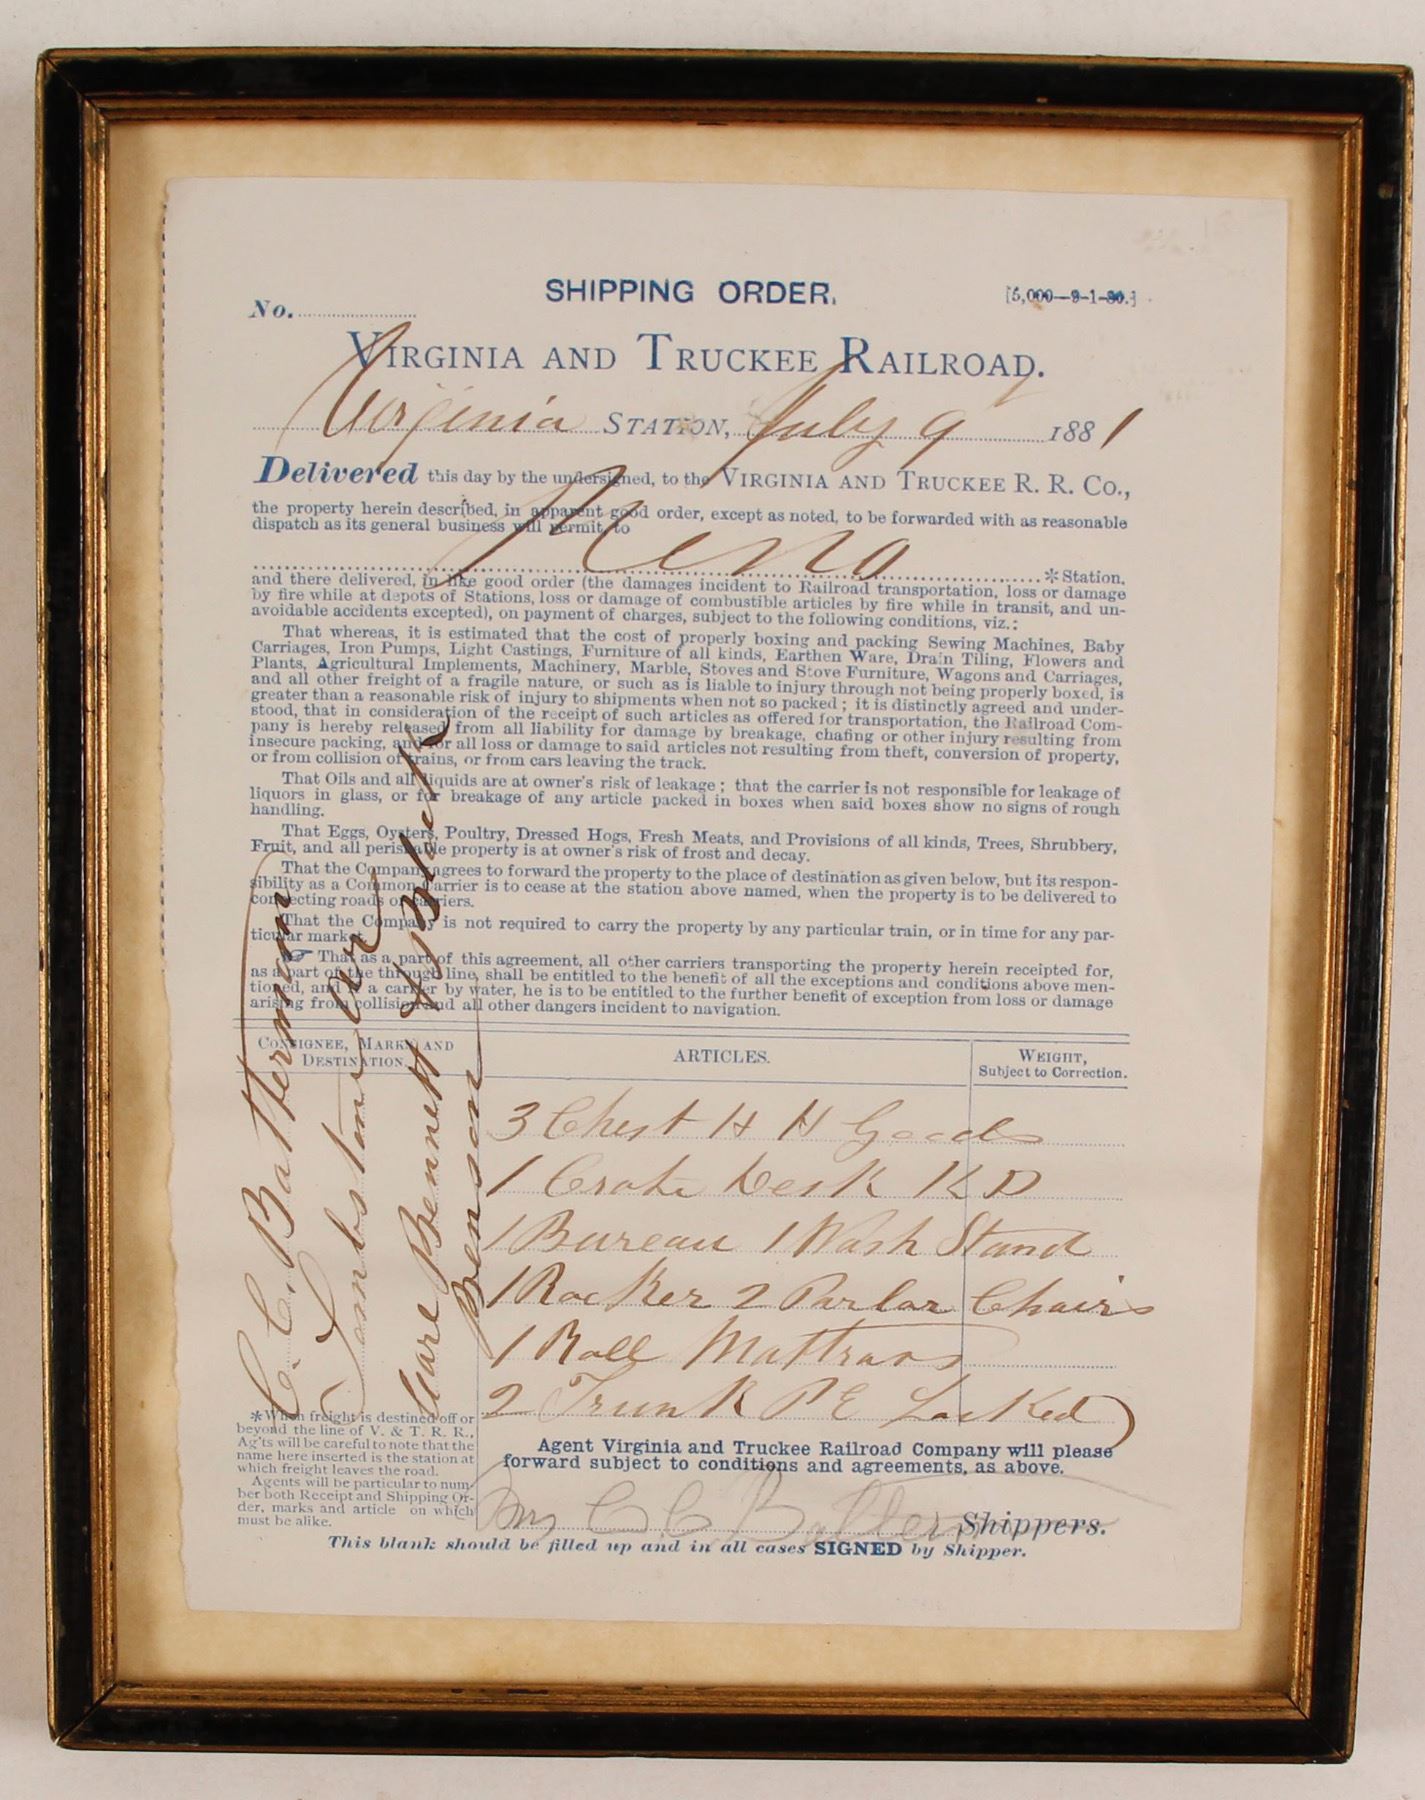 SHIPPING ORDER.
[5,000—9-1-80.]
No.
VIRGINIA AND TRUCKEE RAILROAD.
Virginia STATION, July 9 1881
Delivered this day by the undersigned, to the VIRGINIA AND TRUCKEE R. R. CO.,
the property herein described, in apparent good order, except as noted, to be forwarded with as reasonable
dispatch as its general business will permit, to
Reno *Station,
and there delivered, in like good order (the damages incident to Railroad transportation, loss or damage
by fire while at depots of Stations, loss or damage of combustible articles by fire while in transit, and un-
avoidable accidents excepted), on payment of charges, subject to the following conditions, viz.:
That whereas, it is estimated that the cost of properly boxing and packing Sewing Machines, Baby
Carriages, Iron Pumps, Light Castings, Furniture of all kinds, Earthen Ware, Drain Tiling, Flowers and
Plants, Agricultural Implements, Machinery, Marble, Stoves and Stove Furniture, Wagons and Carriages,
and all other freight of a fragile nature, or such as is liable to injury through not being properly boxed, is
greater than a reasonable risk of injury to shipments when not so packed; it is distinctly agreed and under-
stood, that in consideration of the receipt of such articles as offered for transportation, the Railroad Com-
pany is hereby released from all liability for damage by breakage, chafing or other injury resulting from
insecure packing, and for all loss or damage to said articles not resulting from theft, conversion of property,
or from collision of trains, or from cars leaving the track.
That Oils and all liquids are at owner's risk of leakage; that the carrier is not responsible for leakage of
liquors in glass, or for breakage of any article packed in boxes when said boxes show no signs of rough
handling.
That Eggs, Oysters, Poultry, Dressed Hogs, Fresh Meats, and Provisions of all kinds, Trees, Shrubbery,
Fruit, and all perishable property is at owner's risk of frost and decay.
That the Company agrees to forward the property to the place of destination as given below, but its respon-
sibility as a Common Carrier is to cease at the station above named, when the property is to be delivered to
connecting roads or carriers.
That the Company is not required to carry the property by any particular train, or in time for any par-
ticular market.
☞ That as a part of this agreement, all other carriers transporting the property herein receipted for,
as a part of the through line, shall be entitled to the benefit of all the exceptions and conditions above men-
tioned, and if a carrier by water, he is to be entitled to the further benefit of exception from loss or damage
arising from collision and all other dangers incident to navigation.
CONSIGNEE, MARKS AND
DESTINATION.
ARTICLES.
WEIGHT,
Subject to Correction.
C. C. Batterman
Tombstone
Care Bennett
Benson
3 Chest H H Goods
1 Crate Desk K D
1 Bureau 1 Wash Stand
1 Rocker 2 Parlor Chairs
1 Roll Mattrass
2 Trunk P E Locked
*When freight is destined off or
beyond the line of V. & T. R. R.,
Ag'ts will be careful to note that the
name here inserted is the station at
which freight leaves the road.
Agents will be particular to num-
ber both Receipt and Shipping Or-
der, marks and article on which
must be alike.
Agent Virginia and Truckee Railroad Company will please
forward subject to conditions and agreements, as above.
C. C. Batterman Shippers.
This blank should be filled up and in all cases SIGNED by Shipper.